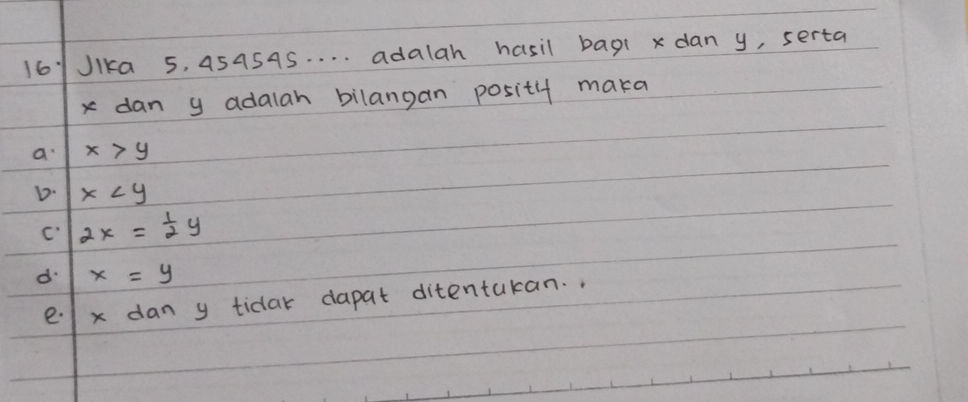 16. Jika 5,454545.... adalah hasil bagi x dan y, serta
x dan y adalah bilangan positif maka
a. x > y
b. x < y
c. 2x = 1/2 y
d. x = y
e. x dan y tidak dapat ditentukan..